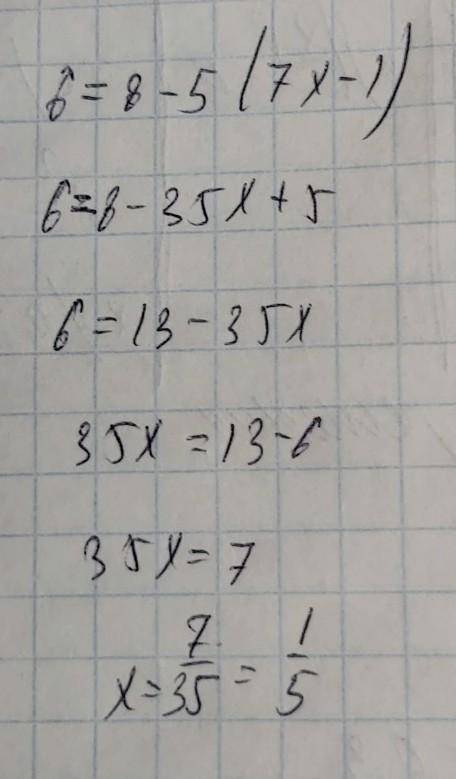 6 = 8 - 5 (7x - 1)
6 = 8 - 35x + 5
6 = 13 - 35x
35x = 13 - 6
35x = 7
x = 7/35 = 1/5